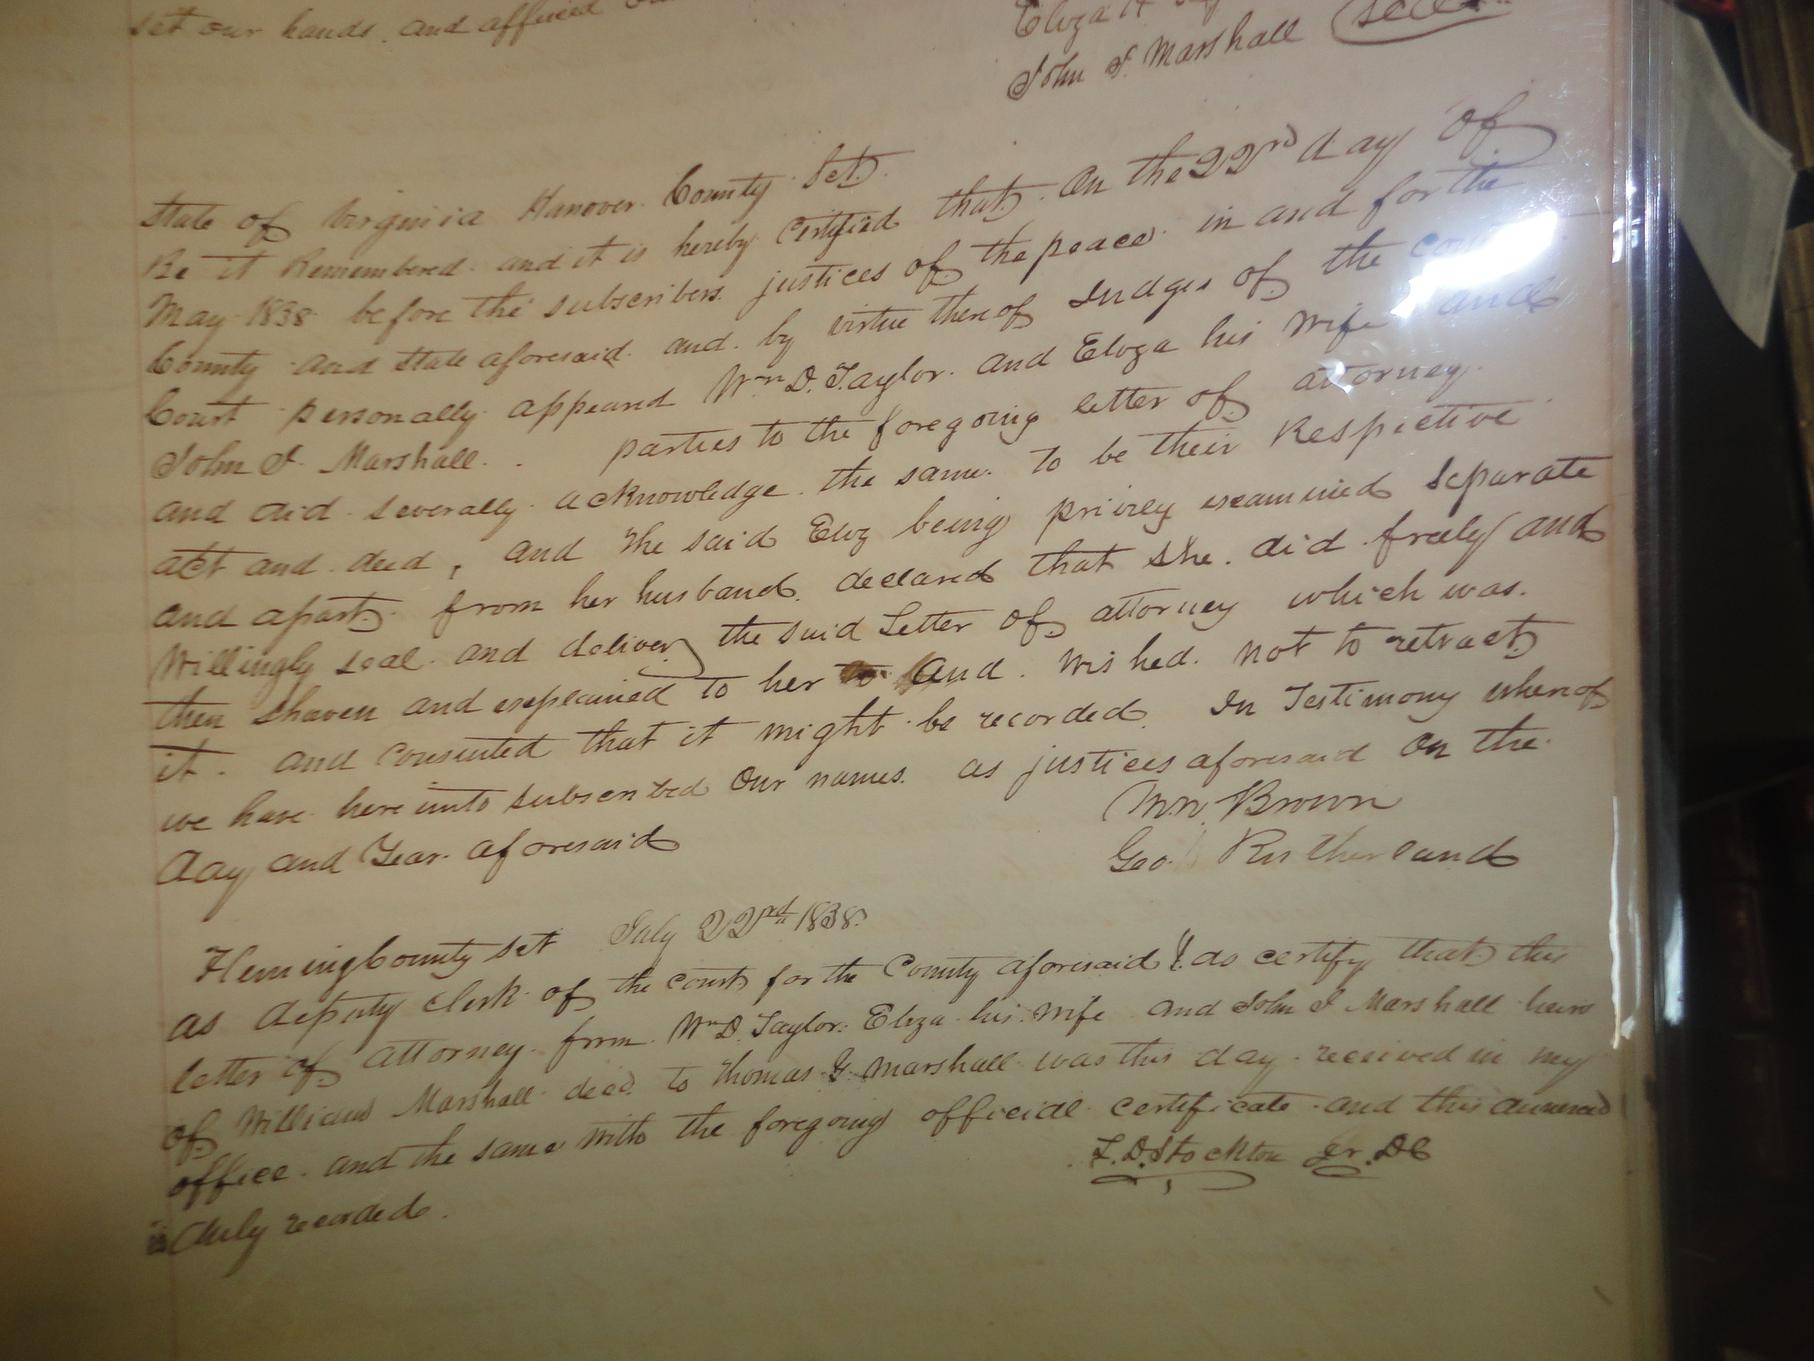 set our hands. and affixed
Eliza H
John J. Marshall (seal)
State of Virginia Hanover County Sct.
Be it Remembered and it is hereby Certified that On the 22nd day of
May 1838 before the subscribers justices of the peace in and for the
County and State aforesaid and by virtue thereof Judges of the
Court personally appeared Wm D. Taylor and Eliza his Wife and
John J. Marshall. parties to the foregoing letter of attorney
and did severally acknowledge the same to be their Respective
act and deed, and the said Eliz being priviley examined Separate
and apart from her husband declared that she did freely and
Willingly seal and deliver the said Letter of attorney which was
then shaven and explained to her and wished not to retract
it. and consented that it might be recorded In Testimony whereof
we have hereunto subscribed Our names as justices aforesaid On the
day and Year aforesaid
Wm. Brown
Geo. Rutherland
Fleming County sct July 22nd 1838.
as deputy clerk of the court for the County aforesaid do certify that this
letter of attorney from Wm D. Taylor Eliza his Wife and John J Marshall heirs
of William Marshall decd to Thomas Marshall was this day received in my
office and the same with the foregoing official certificate and this annexed
is duly recorded.
L.D. Stockton Jr. DC